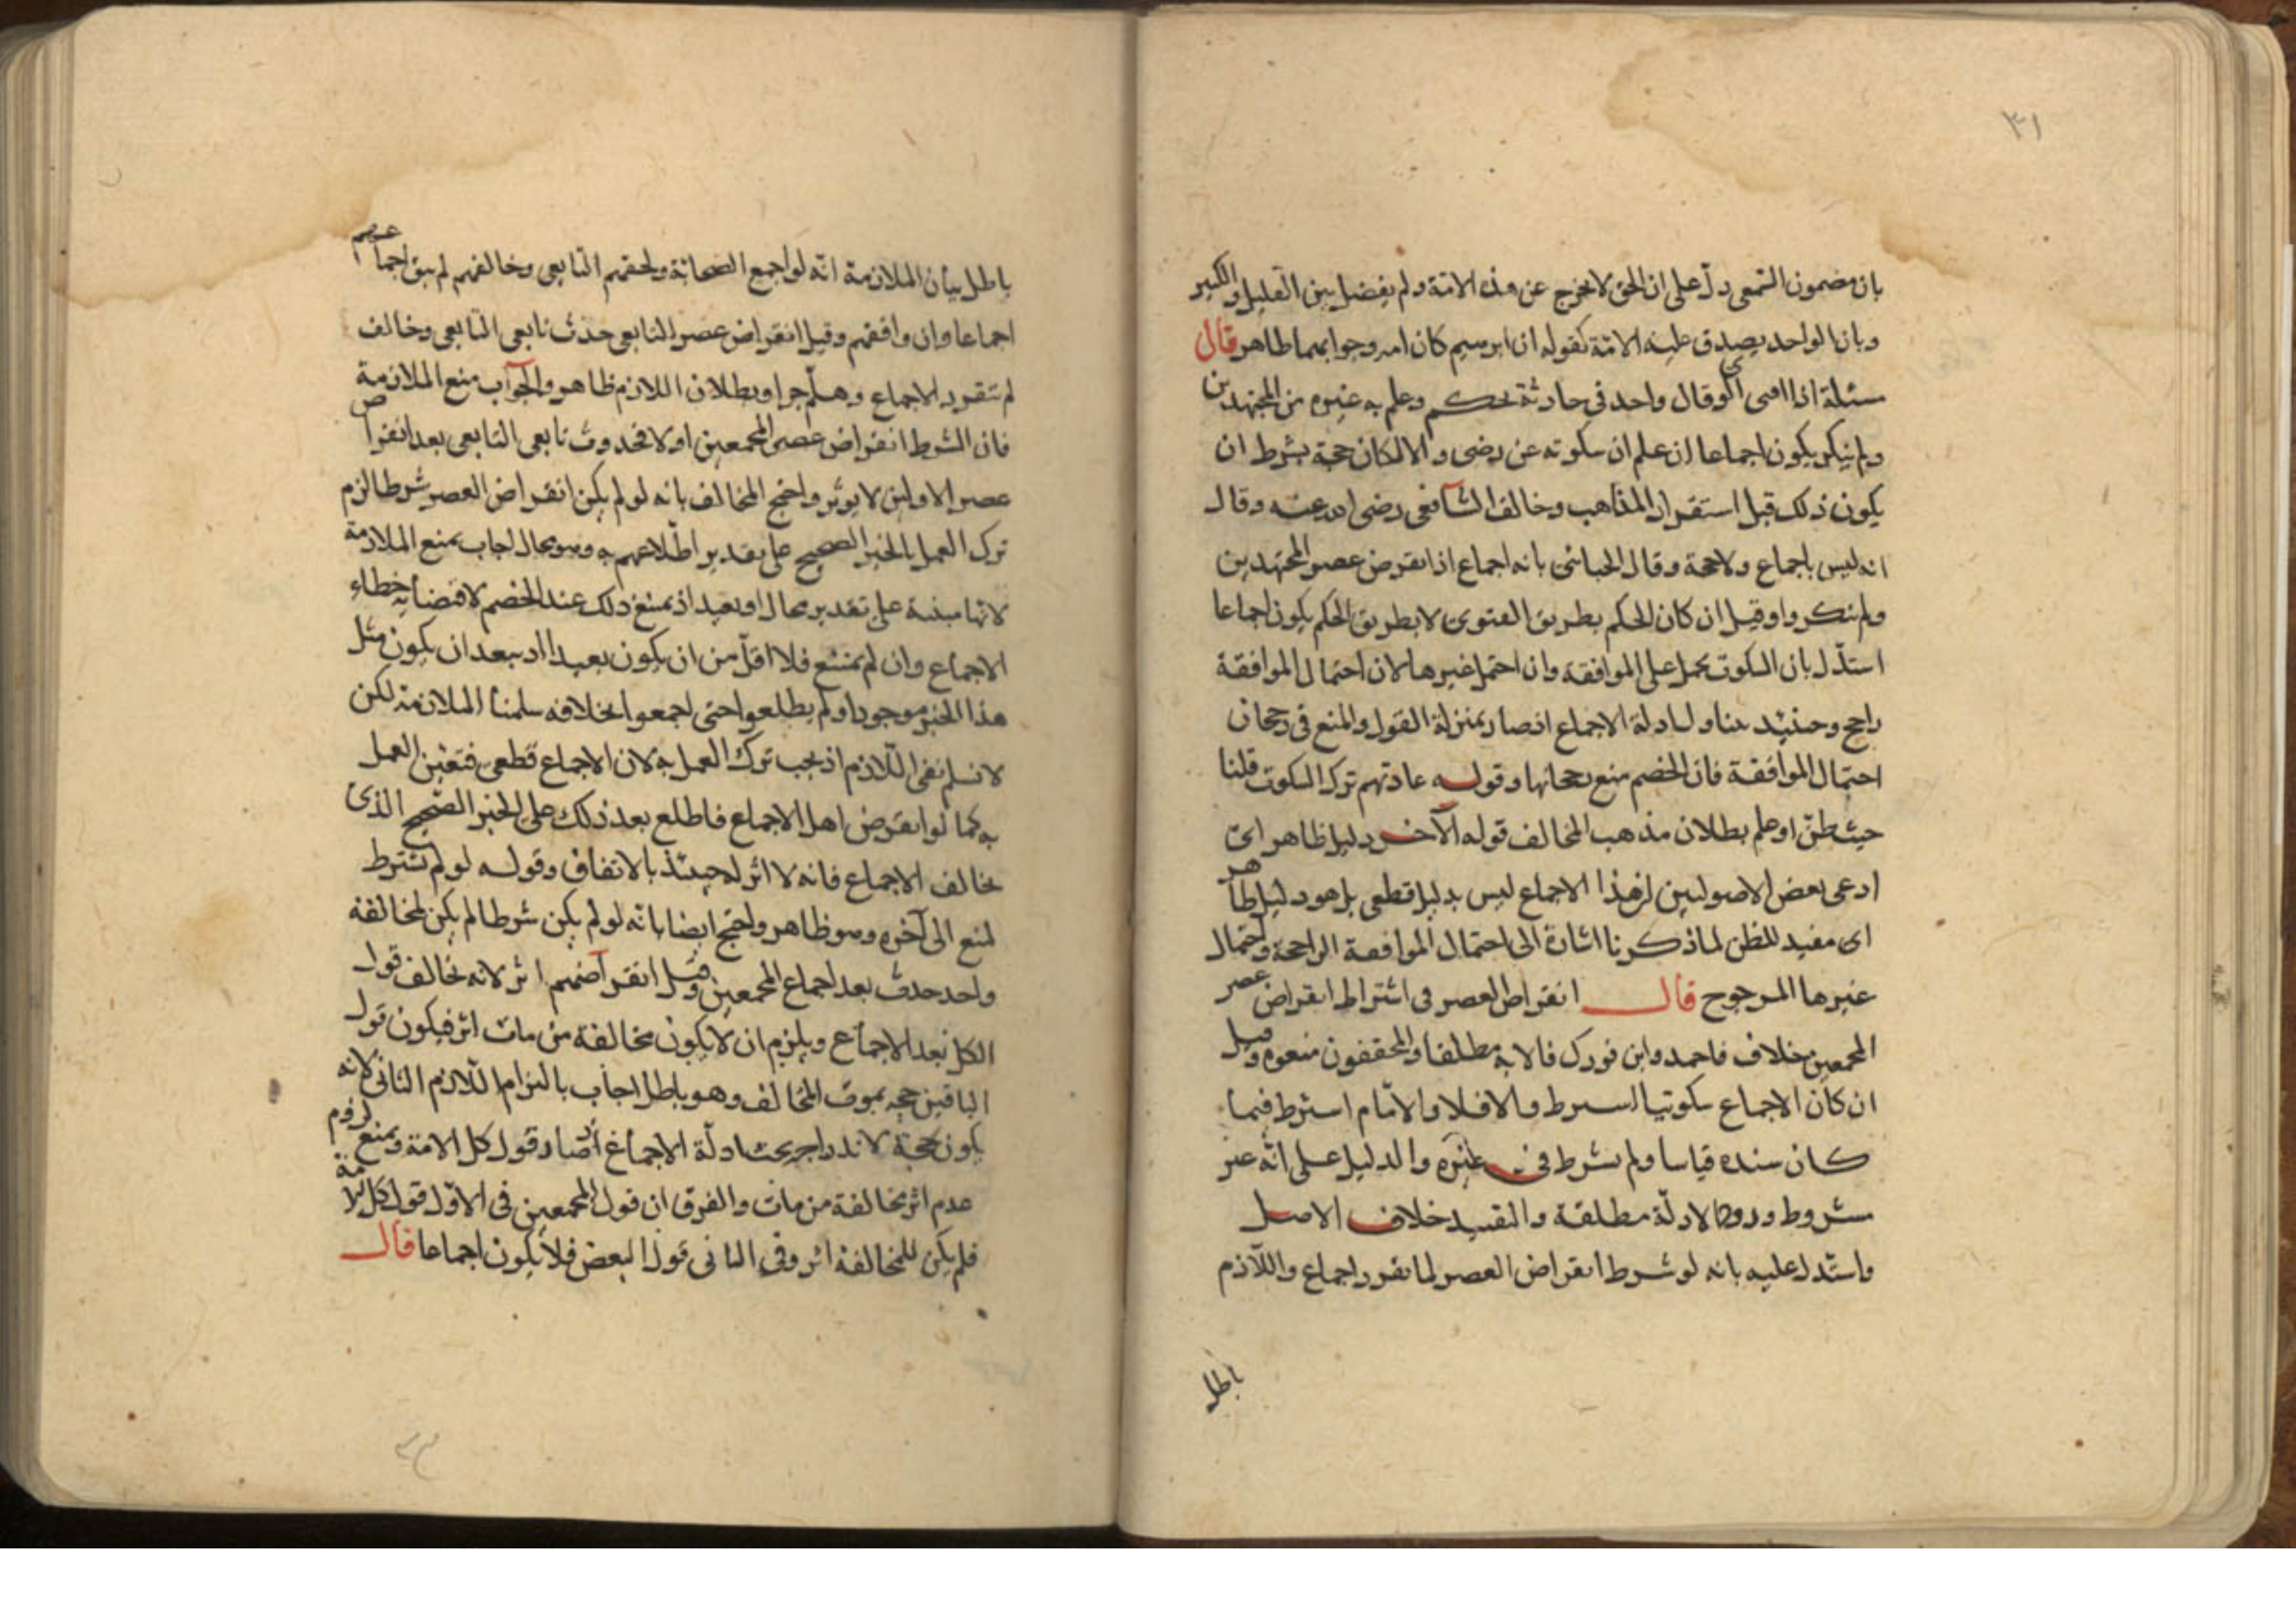 ٣١
بان مضمون السمعى دل على ان الحق لا يخرج عن هذه الامة ولم يفصل بين القليل والكثير
وبان الواحد يصدق عليه الامة كقوله ان ابرهيم كان امة وجوابهما ظاهر قال
مسئلة اذا افتى او قال واحد فى حادثة بحكم وعلم به غيره من المجتهدين
ولم ينكر يكون اجماعا ان علم ان سكوته عن رضى والا لكان حجة بشرط ان
يكون ذلك قبل استقرار المذاهب وخالف الشافعى رضى الله عنه وقال
انه ليس باجماع ولا حجة وقال الجبائى بانه اجماع اذا انقرض عصر المجتهدين
ولم ينكروا وقيل ان كان الحكم بطريق الفتوى لا بطريق الحكم يكون اجماعا
استدل بان السكوت يحمل على الموافقة وان احتمل غيرها لان احتمال الموافقة
راجح وحينئذ يتناوله ادلة الاجماع اذ صار بمنزلة القول والمنع فى رجحان
احتمال الموافقة فان الخصم منع رجحانها وقوله عادتهم ترك السكوت قلنا
حيث ظن او علم بطلان مذهب المخالف قوله الآخر دليل ظاهر اى
ادعى بعض الاصوليين ان هذا الاجماع ليس بدليل قطعى بل هو دليل ظاهر
اى مفيد للظن لما ذكرنا اشارة الى احتمال الموافقة الراجحة واحتمال
غيرها المرجوح قال انقراض العصر فى اشتراط انقراض عصر
المجمعين خلاف فاحمد وابن فورك قالا به مطلقا والمحققون منعوه وقيل
ان كان الاجماع سكوتيا اشترط والا فلا والامام اشترط فيما
كان سنده قياسا ولم يشرط فى غيره والدليل على انه غير
مشروط ورود الادلة مطلقة والتقييد خلاف الاصل
واستدل عليه بانه لو شرط انقراض العصر لما تقرر اجماع واللازم
باطل
باطل بيان الملازمة انه لو اجمع الصحابة ولحقهم التابعى وخالفهم لم يبق اجماعهم
اجماعا وان وافقهم وقبل انقراض عصر التابعى حدث تابعى التابعى وخالف
لم تتقرر الاجماع وهلم جرا وبطلان اللازم ظاهر والجواب منع الملازمة
فان الشرط انقراض عصر المجمعين اولا فحدوث تابعى التابعى بعد انقراض
عصر الاولين لا يؤثر واحتج المخالف بانه لو لم يكن انقراض العصر شرطا لزم
ترك العمل بالخبر الصحيح على تقدير اطلاعهم به وهو محال اجاب بمنع الملازمة
لانها مبنية على تقدير محال او بعيد اذ يمنع ذلك عند الخصم لاقتضائه خطاء
الاجماع وان لم يمتنع فلا اقل من ان يكون بعيدا اذ يبعد ان يكون مثل
هذا الخبر موجودا ولم يطلعوا حتى اجمعوا بخلافه سلمنا الملازمة لكن
لا نسلم نفى اللازم اذ يجب ترك العمل به لان الاجماع قطعى فتعين العمل
به كما لو انقرض اهل الاجماع فاطلع بعد ذلك على الخبر الصحيح الذى
يخالف الاجماع فانه لا اثر له حينئذ بالاتفاق وقوله لو لم تشترط
لمنع الى آخره وهو ظاهر واحتج ايضا بانه لو لم يكن شرطا لم يكن لمخالفة
واحد حدث بعد اجماع المجمعين وقبل انقراضهم اثر لانه يخالف قول
الكل بعد الاجماع ويلزم ان لا يكون مخالفة من مات اثر فيكون قول
الباقين حجة بموت المخالف وهو باطل اجاب بالتزام اللازم الثانى لانه
يكون حجة لاندراجه تحت ادلة الاجماع اذ صار قول كل الامة وبمنع لزوم
عدم اثر مخالفة من مات والفرق ان قول المجمعين فى الاول قول كل الامة
فلم يكن للمخالفة اثر وفى الثانى قول البعض فلا يكون اجماعا قال